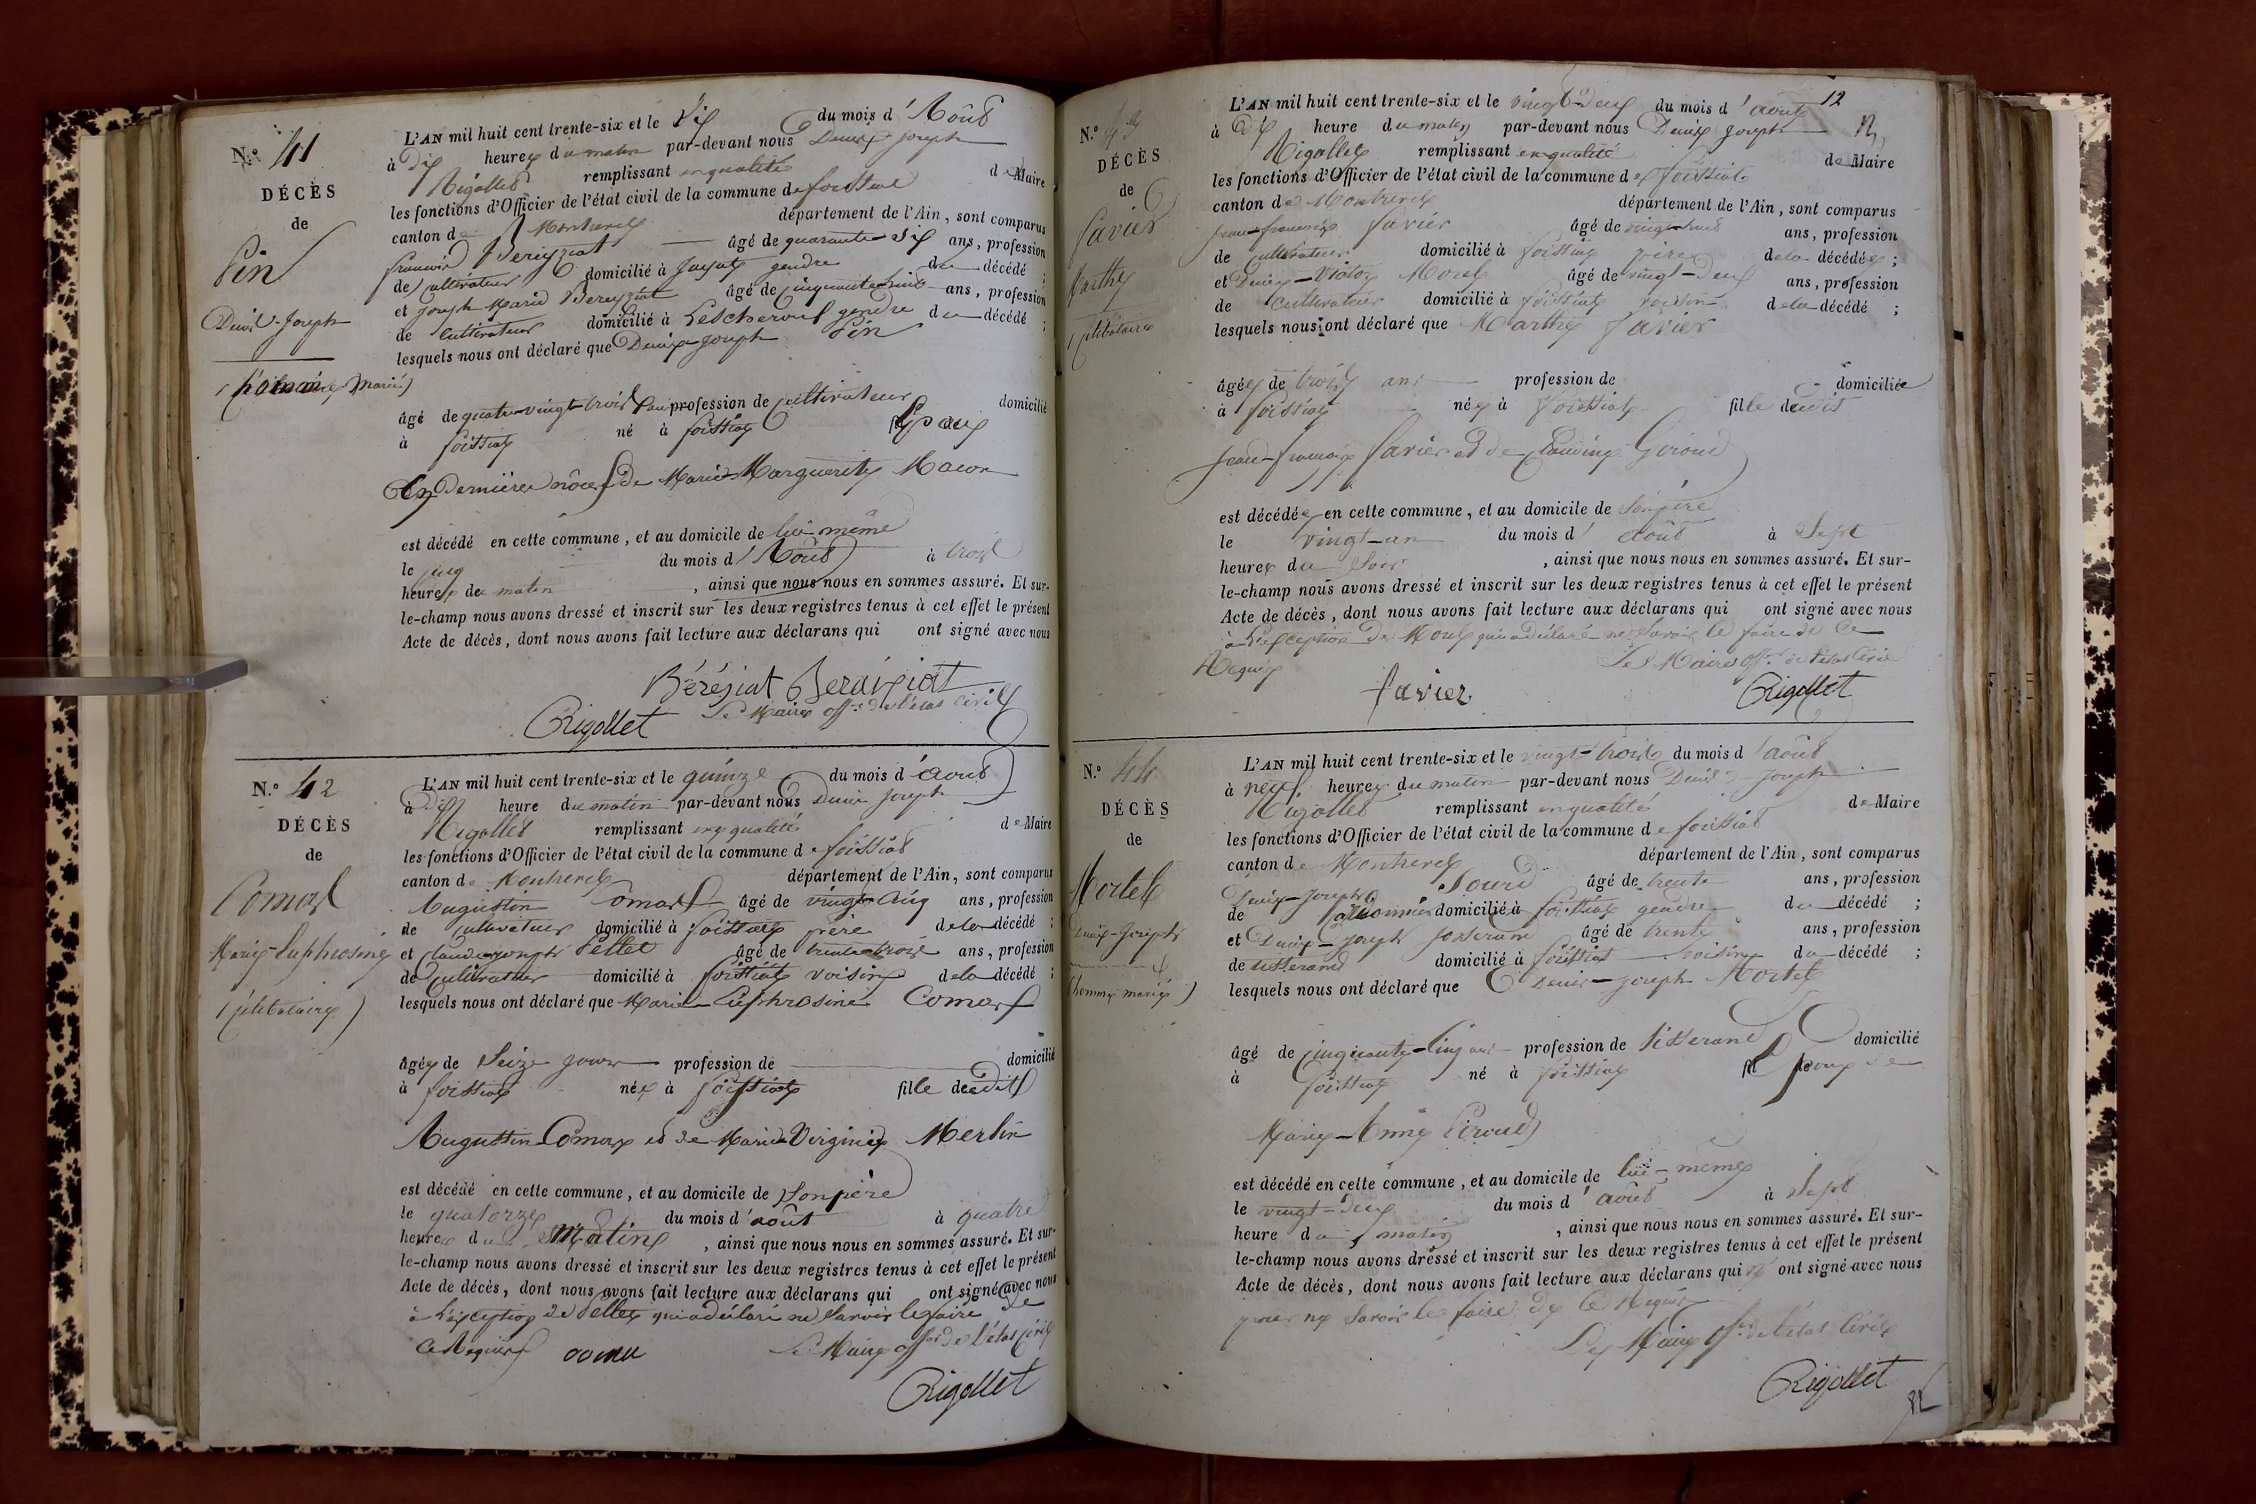 N.º 41
DÉCÈS
de
Pin
Denis-Joseph
(homme marié)
L'AN mil huit cent trente-six et le Six du mois d'Août
à Dix heures du matin par-devant nous Denis Joseph
Rigollet remplissant en qualité de Maire
les fonctions d'Officier de l'état civil de la commune de foissiat
canton de Montrevel département de l'Ain, sont comparus
francois Bereyziat âgé de quarante-six ans, profession
de Cultivateur domicilié à Jayat gendre du décédé ;
et Joseph Marie Bereyziat âgé de cinquante-huit ans, profession
de Cultivateur domicilié à Lescheroux gendre du décédé ;
lesquels nous ont déclaré que Denis Joseph Pin
âgé de quatre-vingt-trois ans profession de Cultivateur domicilié
à foissiat né à foissiat Epoux
En dernières nôces de Marie-Marguerite Macon
est décédé en cette commune, et au domicile de lui même
le cinq du mois d'Août à trois
heures du matin, ainsi que nous nous en sommes assuré. Et sur-
le-champ nous avons dressé et inscrit sur les deux registres tenus à cet effet le présent
Acte de décès, dont nous avons fait lecture aux déclarans qui ont signé avec nous
Bérésiat
Le Maire off.er de l'état civil
Rigollet
N.º 42
DÉCÈS
de
Comas
Marie-Euphrosine
(célibataire)
L'AN mil huit cent trente-six et le quinze du mois d'août
à Dix heure du matin par-devant nous Denis Joseph
Rigollet remplissant en qualité de Maire
les fonctions d'Officier de l'état civil de la commune de foissiat
canton de Montrevel département de l'Ain, sont comparus
Augustin Comas âgé de vingt-cinq ans, profession
de Cultivateur domicilié à foissiat père de la décédé ;
et Claude-joseph Pellet âgé de trente-trois ans, profession
de Cultivateur domicilié à foissiat voisin de la décédé ;
lesquels nous ont déclaré que Marie-Euphrosine Comas
âgée de Seize jours profession de domicilié
à foissiat née à foissiat fille dudit
Augustin Comas et de Marie-Virginie Merlin
est décédé en cette commune, et au domicile de Son père
le quatorze du mois d'août à quatre
heures du matin, ainsi que nous nous en sommes assuré. Et sur-
le-champ nous avons dressé et inscrit sur les deux registres tenus à cet effet le présent
Acte de décès, dont nous avons fait lecture aux déclarans qui ont signé avec nous
à L'éxception de Pellet qui a déclaré ne Savoir le faire de
Ce Requis
Le Maire off.er de l'état Civil
Rigollet
12
N.º 43
DÉCÈS
de
Favier
Marthe
(célibataire
L'AN mil huit cent trente-six et le vingt-Deux du mois d'août
à Dix heure du matin par-devant nous Denis Joseph
Rigollet remplissant en qualité de Maire
les fonctions d'Officier de l'état civil de la commune de foissiat
canton de Montrevel département de l'Ain, sont comparus
Jean-francois Favier âgé de vingt-huit ans, profession
de Cultivateur domicilié à foissiat père de la décédée ;
et Denis-Victor Morel âgé de vingt-Deux ans, profession
de Cultivateur domicilié à foissiat voisin de la décédé ;
lesquels nous ont déclaré que Marthe Favier
âgée de trois ans profession de domiciliée
à foissiat née à foissiat fille dudit
Jean-francois Favier et de Claudine Giroud
est décédée en cette commune, et au domicile de Son père
le vingt-un du mois d'août à Sept
heures du Soir, ainsi que nous nous en sommes assuré. Et sur-
le-champ nous avons dressé et inscrit sur les deux registres tenus à cet effet le présent
Acte de décès, dont nous avons fait lecture aux déclarans qui ont signé avec nous
à L'éxception de Morel qui a déclaré ne Savoir le faire de Ce
Requis
Le Maire off.er de l'état Civil
favier
Rigollet
N.º 44
DÉCÈS
de
Mortel
Denis-Joseph
(homme marié)
L'AN mil huit cent trente-six et le vingt-trois du mois d'août
à neuf heures du matin par-devant nous Denis Joseph
Rigollet remplissant en qualité de Maire
les fonctions d'Officier de l'état civil de la commune de foissiat
canton de Montrevel département de l'Ain, sont comparus
Denis-Joseph Sourd âgé de trente ans, profession
de domicilié à foissiat gendre du décédé ;
et Denis-Joseph Josserand âgé de trente ans, profession
de tisserand domicilié à foissiat voisin du décédé ;
lesquels nous ont déclaré que Denis-Joseph Mortel
âgé de Cinquante-Cinq ans profession de tisserand domicilié
à foissiat né à foissiat Epoux de
Marie-Anne Péroud
est décédé en cette commune, et au domicile de lui-même
le vingt-deux du mois d'août à Sept
heure du matin, ainsi que nous nous en sommes assuré. Et sur-
le-champ nous avons dressé et inscrit sur les deux registres tenus à cet effet le présent
Acte de décès, dont nous avons fait lecture aux déclarans qui n'ont signé avec nous
pour ne Savoir le faire de Ce Requis
Le Maire off.er de l'état Civil
Rigollet